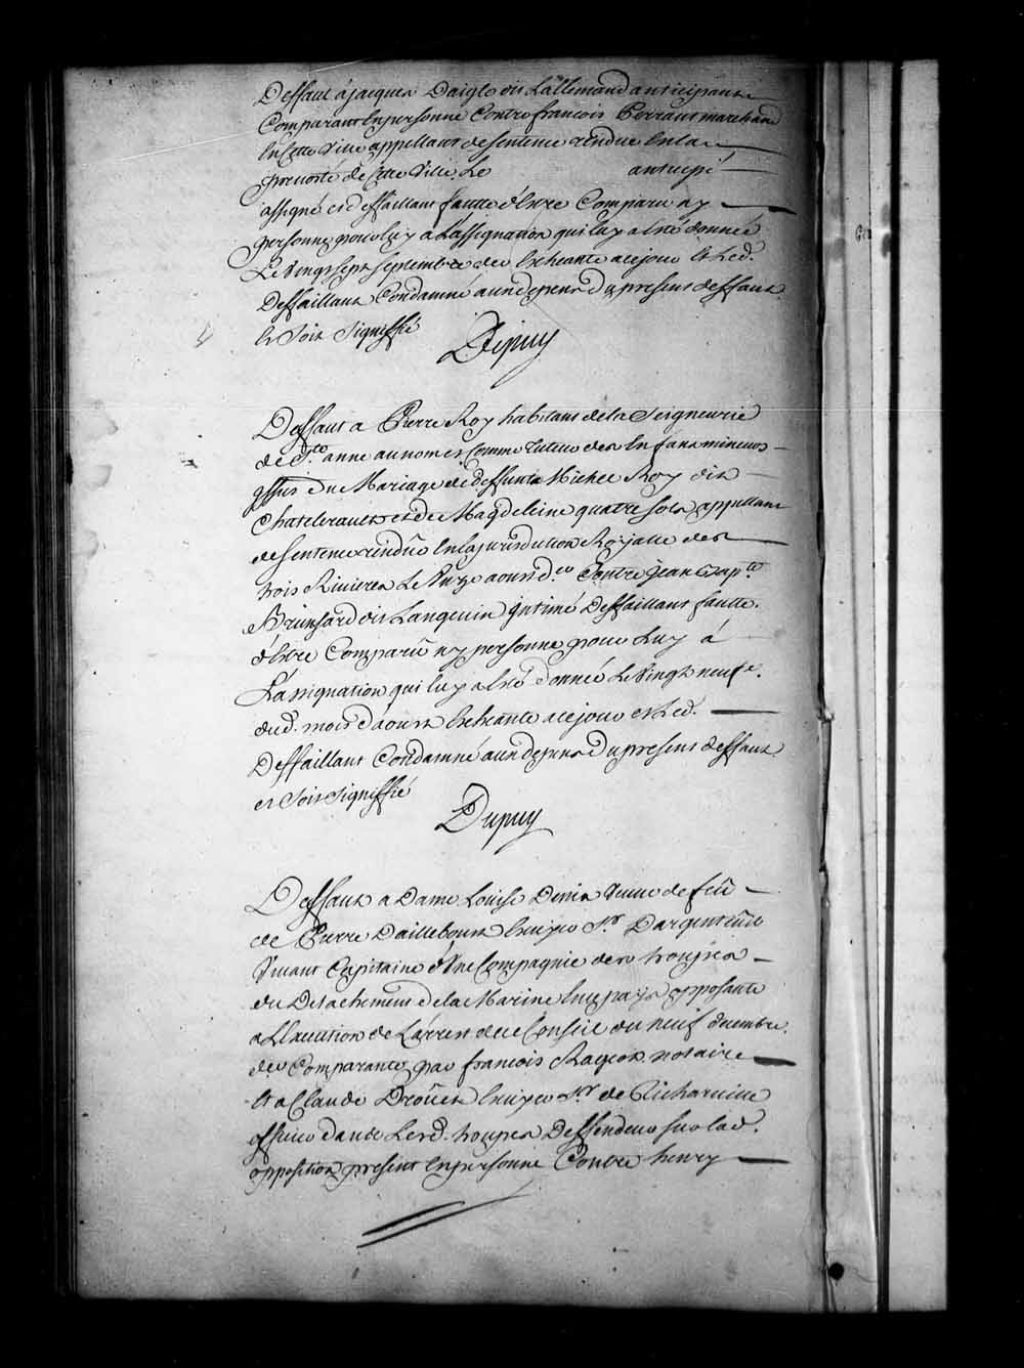 Deffaut a Jacques Daigle dit Lallemand anticipant
Comparant en personne Contre francois Perrault marchand
en Cette Ville appellant de sentence rendue en la
prevosté de Cette Ville Le anticipé
assigné et deffaillant faute d'Estre Comparu ny
personne pour luy a L'assignation qui luy a esté donnée
Le Vingt sept septembre der Escheante a ce jour et Led.
Deffaillant Condamné aux depens du present deffaut
et soit signiffié
Dupuy
Deffaut a Pierre Roy habitant de la Seigneurie
de Ste anne au nom et Comme tuteur des Enfans mineurs
issus du Mariage de deffunt Michel Roy dit
Chatelerault et de Magdeleine quatresols appellant
de sentence rendüe en la jurisdiction Royalle des
trois Rivieres Le aoust d.er Contre Jean Bapte
Brunsard dit Langevin intimé Deffaillant faulte
d'Estre Comparü ny personne pour Luy á
L'assignation qui luy a esté donnée Le Vingt neufe.
dud. mois d'aoust Escheante a ce jour et Led.
Deffaillant Condamné aux depens du present deffaut
et soit signiffié
Dupuy
Deffaut a Dame Louise Denis Veuve de feü
de Pierre Daillebourt Escuyer Sr. Dargenteüil
Vivant Capitaine d'Une Compagnie des trouppes
du Detachement de la Marine en ce pays opposante
a L'Execution de L'arrest de ce Conseil du neuf decembre
der Comparante par francois Rageot notaire
Et a Claude Droüet Escuyer Sr. de Richarville
officier dans Lesd. trouppes Deffendeur sur lad.
opposition present en personne Contre henry